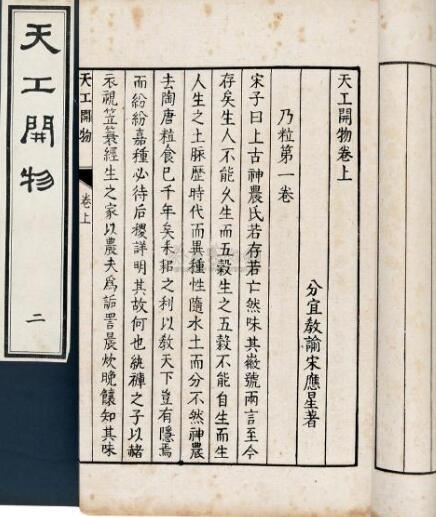 天工開物
二
天工開物卷上
分宜敎諭宋應星著
乃粒第一卷
宋子曰上古神農氏若存若亡然味其徽號兩言至今
存矣生人不能久生而五穀生之五穀不能自生而生
人生之土脈歷時代而異種性隨水土而分不然神農
去陶唐粒食已千年矣耒耜之利以敎天下豈有隱焉
而紛紛嘉種必待后稷詳明其故何也紈褲之子以赭
衣視笠蓑經生之家以農夫爲詬詈晨炊晚饟知其味
天工開物
卷上